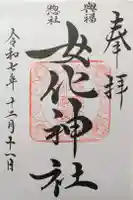 奉拝
興福
惣社
女化神社
令和七年十二月十一日